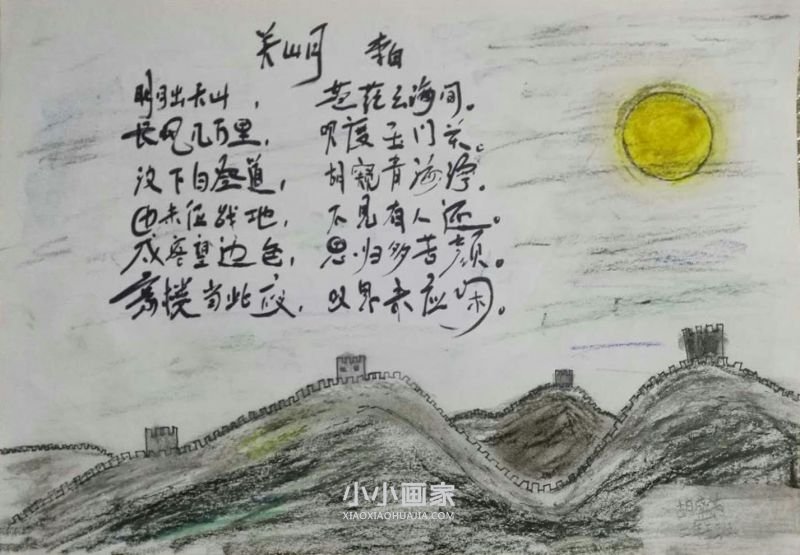 关山月 李白
明月出天山， 苍茫云海间。
长风几万里， 吹度玉门关。
汉下白登道， 胡窥青海湾。
由来征战地， 不见有人还。
戍客望边色， 思归多苦颜。
高楼当此夜， 叹息未应闲。
小小画家
XIAOXIAOHUAJIA.COM